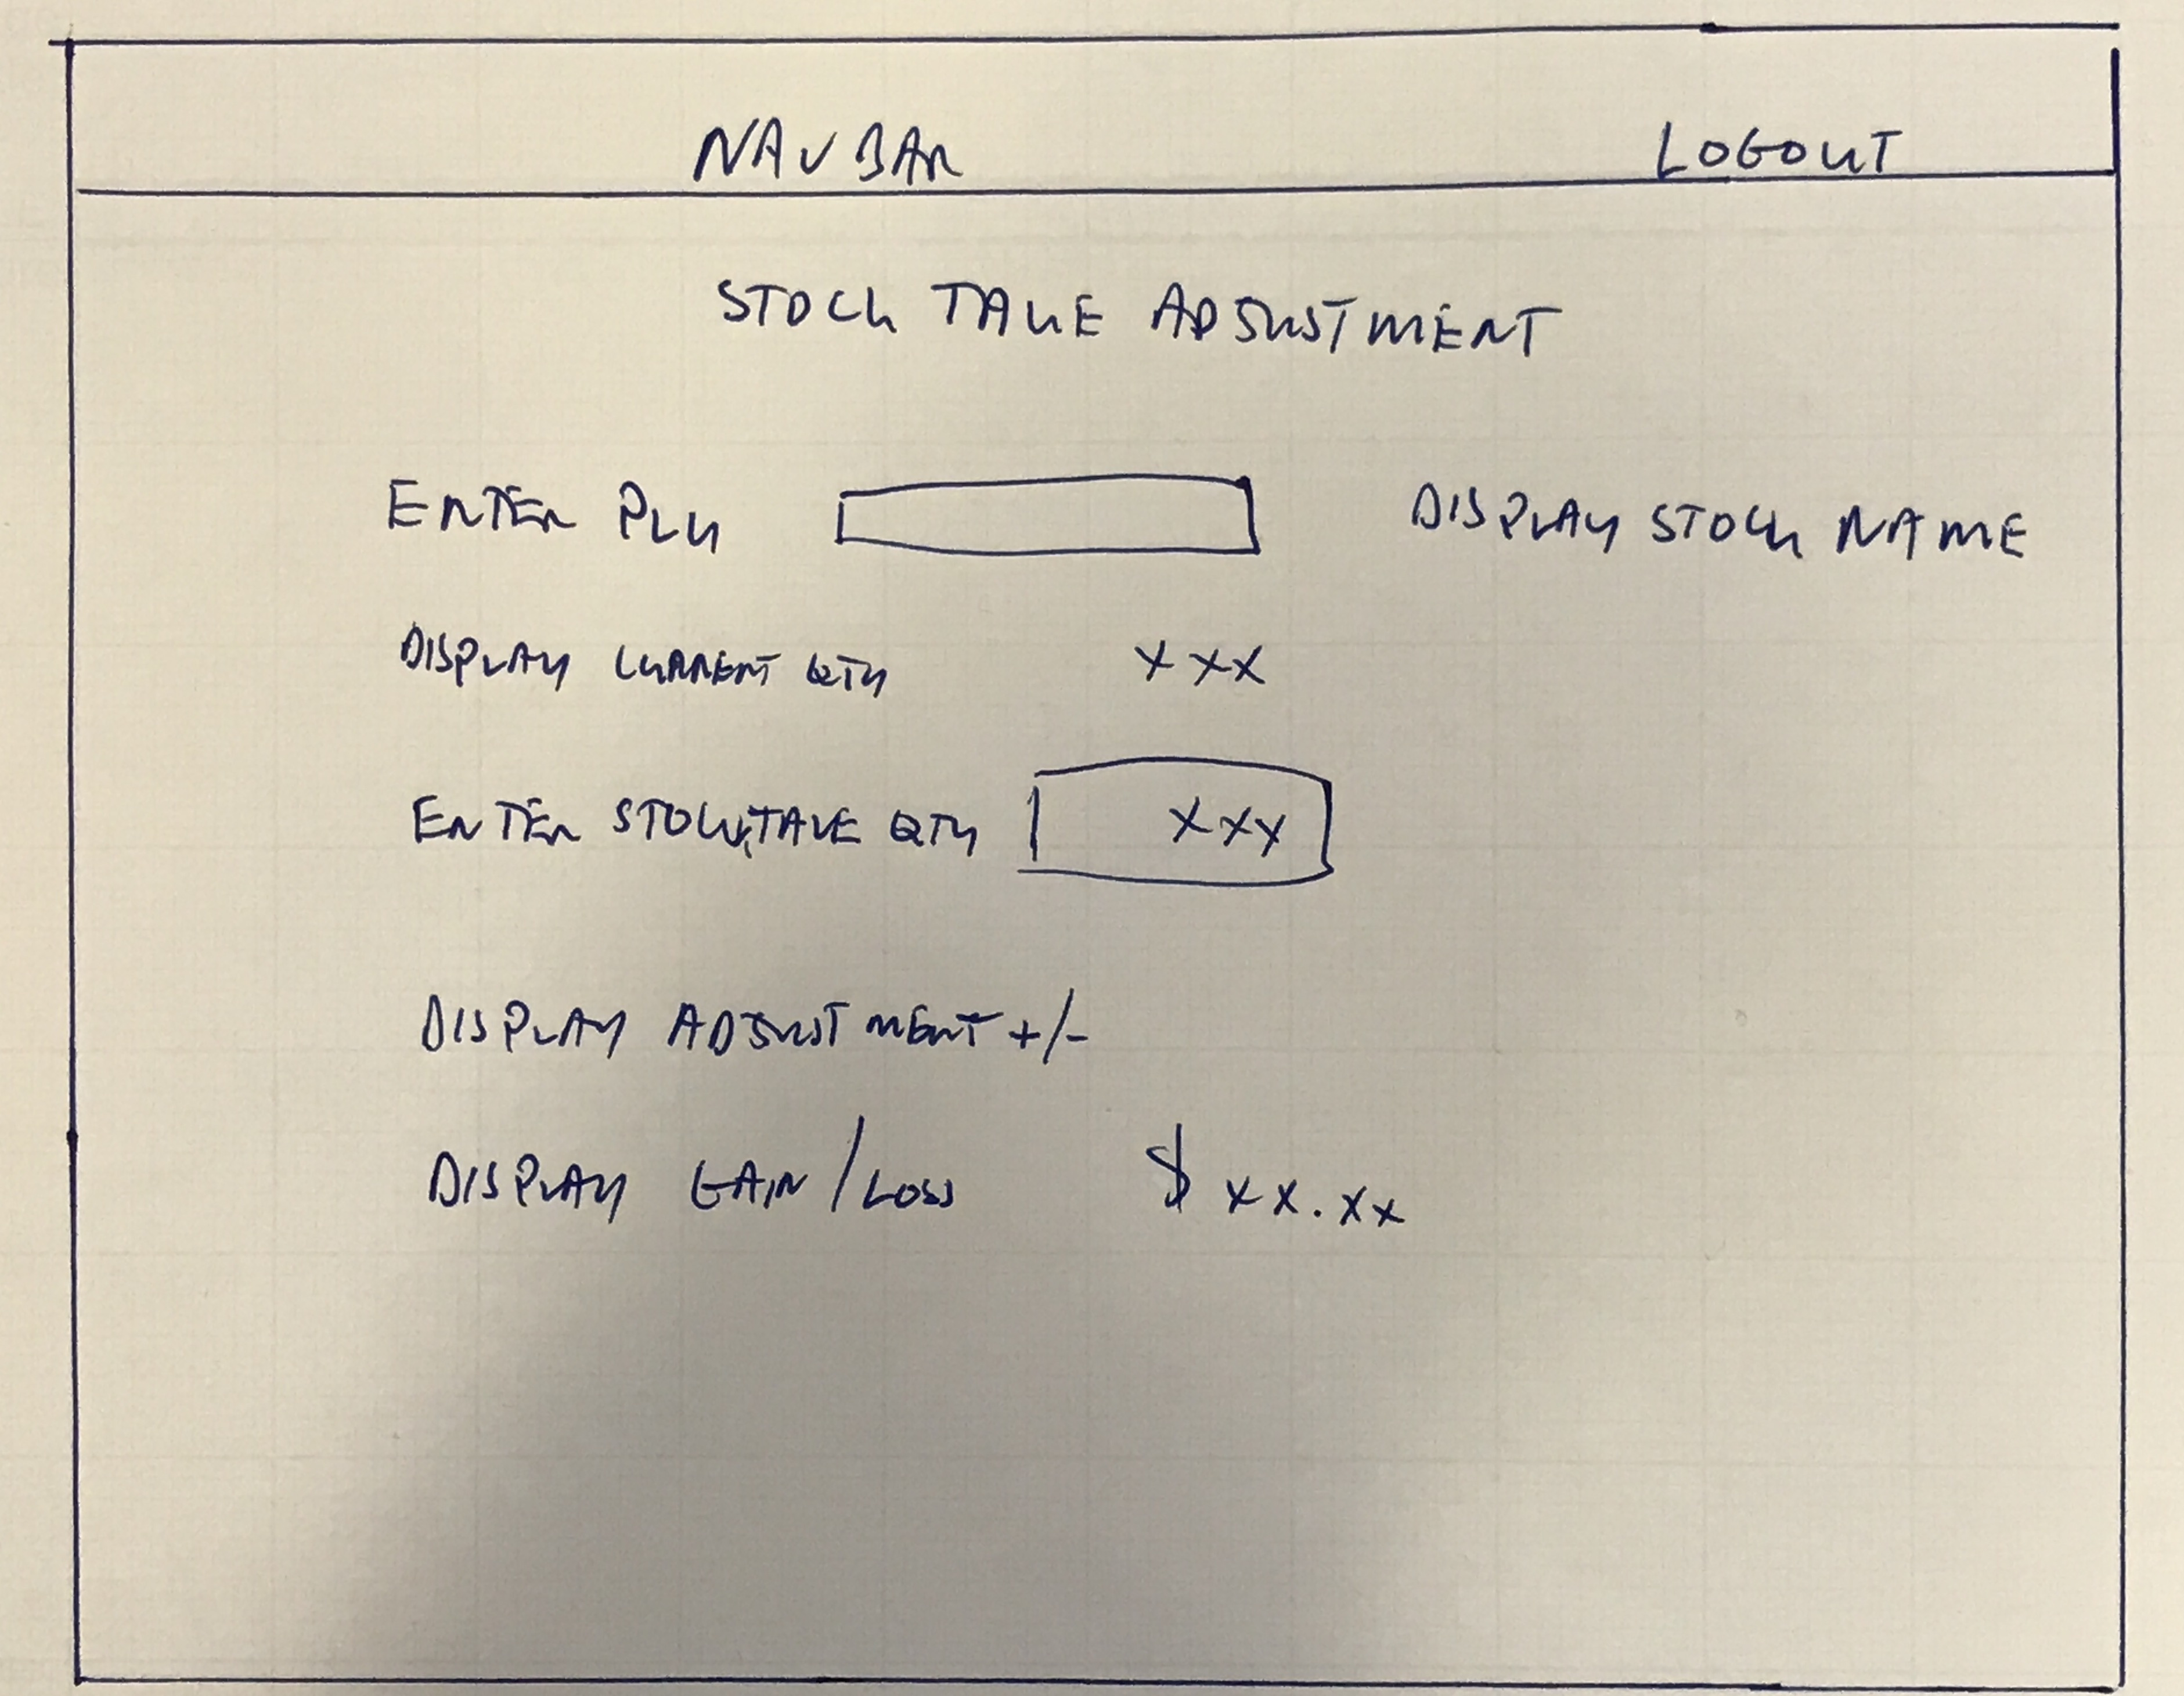 NAVBAR LOGOUT
STOCK TAKE ADJUSTMENT
ENTER PLU DISPLAY STOCK NAME
DISPLAY CURRENT QTY XXX
ENTER STOCKTAKE QTY XXX
DISPLAY ADJUSTMENT +/-
DISPLAY GAIN/LOSS $ XX.XX